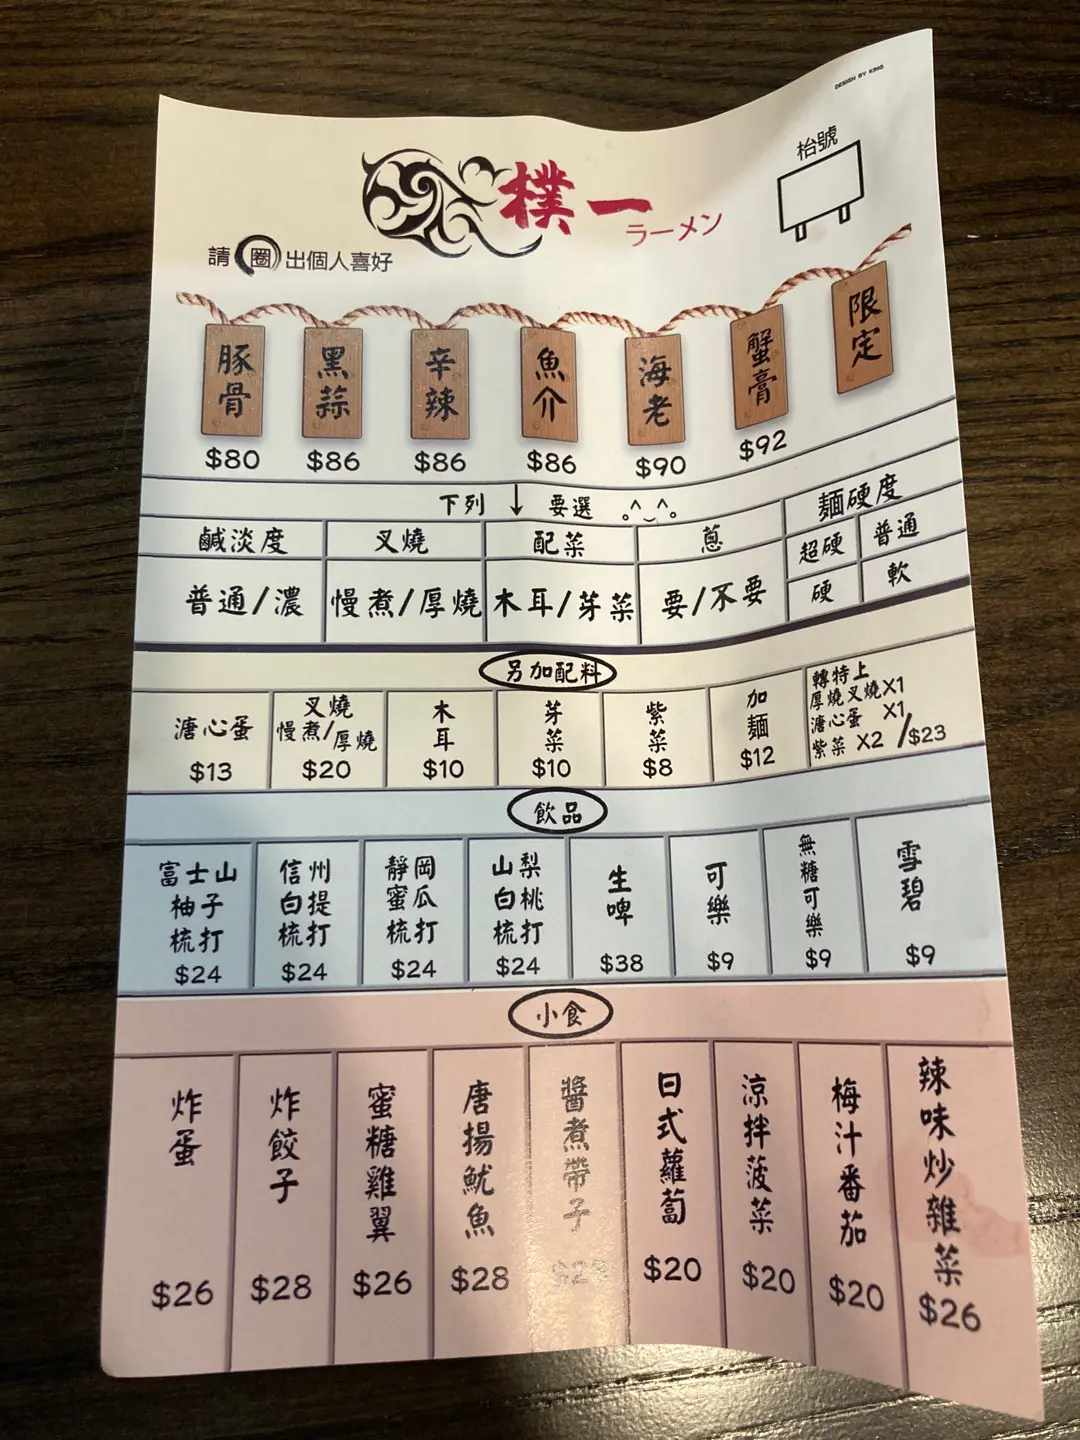 DESIGN BY KING
枱號
樸一
ラーメン
請圈出個人喜好
豚骨 黑蒜 辛辣 魚介 海老 蟹膏 限定
$80 $86 $86 $86 $90 $92
下列↓要選 。^‿^。
鹹淡度 叉燒 配菜 蔥 麵硬度
普通/濃 慢煮/厚燒 木耳/芽菜 要/不要 超硬 普通 硬 軟
另加配料
溏心蛋 $13
叉燒 慢煮/厚燒 $20
木耳 $10
芽菜 $10
紫菜 $8
加麵 $12
轉特上
厚燒叉燒X1
溏心蛋 X1
紫菜 X2 /$23
飲品
富士山柚子梳打 $24
信州白提梳打 $24
靜岡蜜瓜梳打 $24
山梨白桃梳打 $24
生啤 $38
可樂 $9
無糖可樂 $9
雪碧 $9
小食
炸蛋 $26
炸餃子 $28
蜜糖雞翼 $26
唐揚魷魚 $28
醬煮帶子
日式蘿蔔 $20
涼拌菠菜 $20
梅汁番茄 $20
辣味炒雜菜 $26